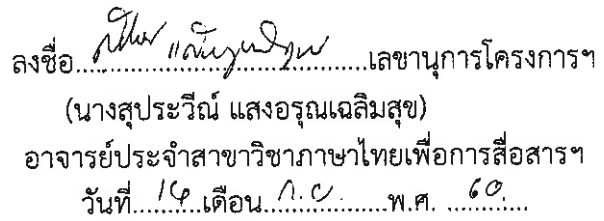 ลงชื่อ....................................เลขานุการโครงการฯ
(นางสุประวีณ์ แสงอรุณเฉลิมสุข)
อาจารย์ประจำสาขาวิชาภาษาไทยเพื่อการสื่อสารฯ
วันที่.....14.....เดือน.....ก.ย......พ.ศ. ....60....